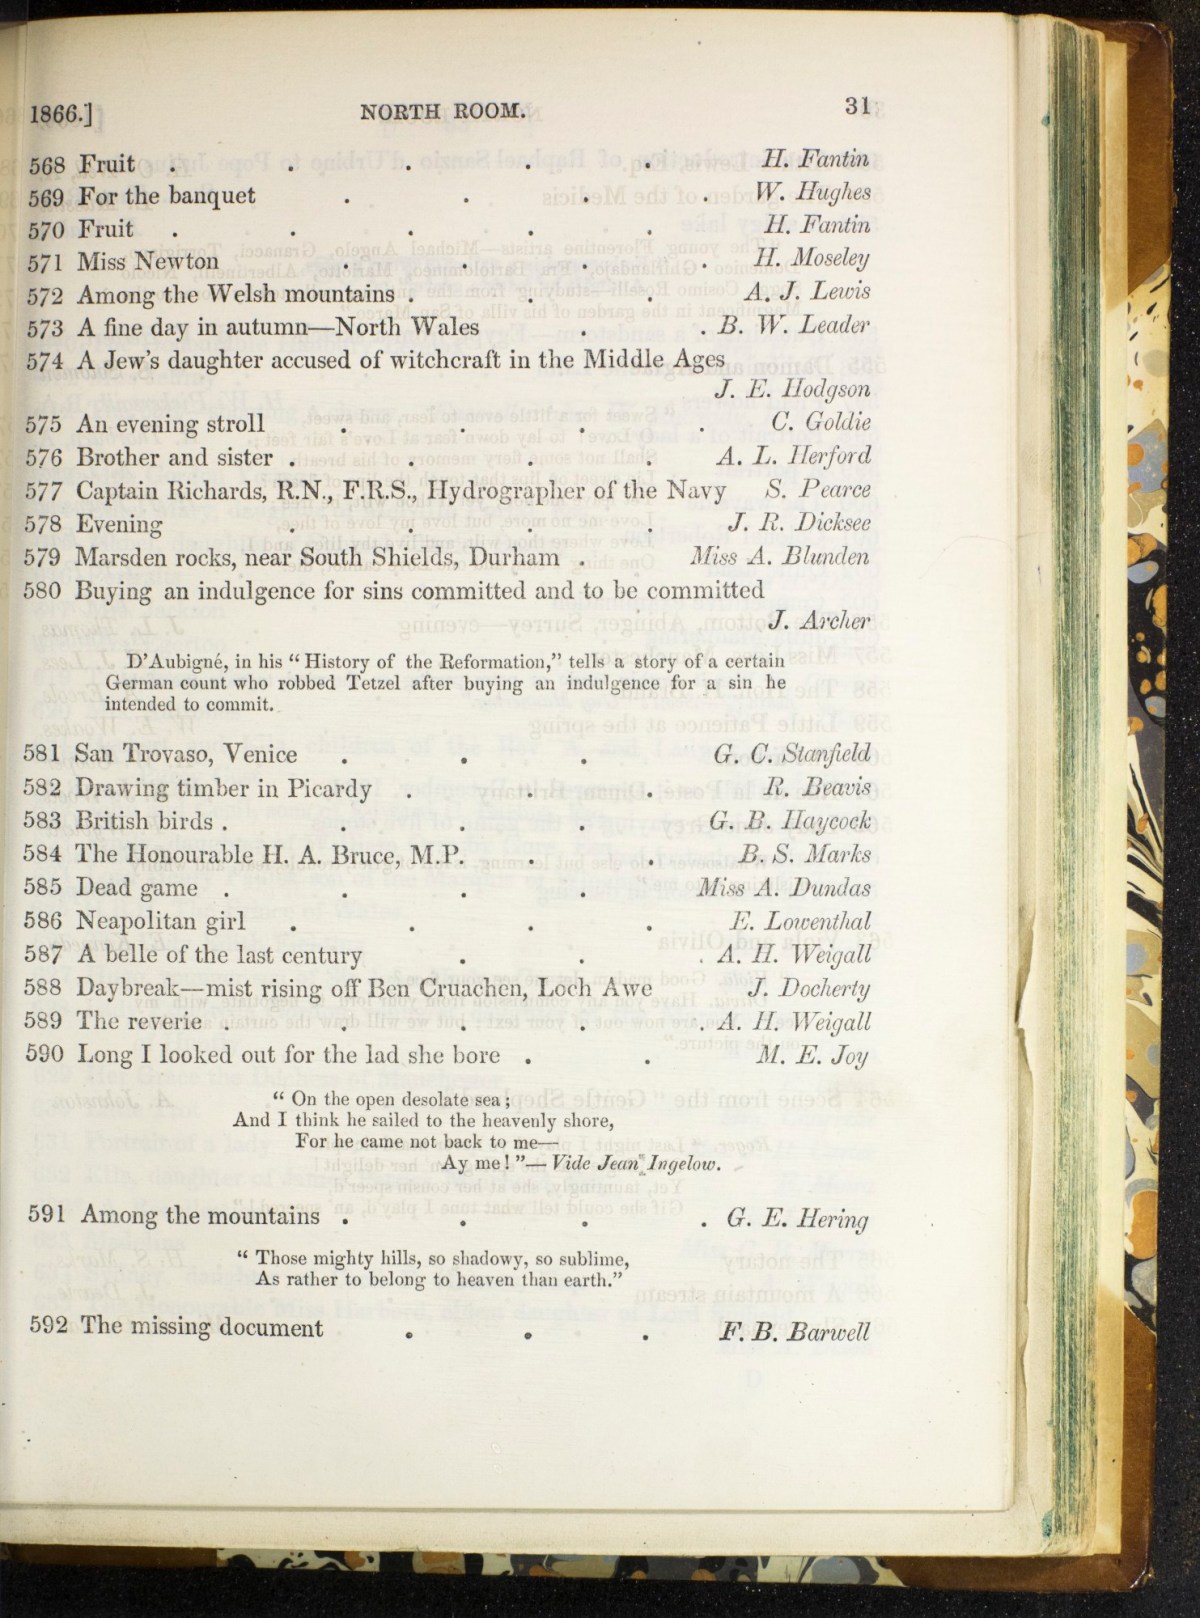 1866.] NORTH ROOM. 31
568 Fruit . . . . . H. Fantin
569 For the banquet . . . . W. Hughes
570 Fruit . . . . . H. Fantin
571 Miss Newton . . . . H. Moseley
572 Among the Welsh mountains . . . A. J. Lewis
573 A fine day in autumn—North Wales . . B. W. Leader
574 A Jew's daughter accused of witchcraft in the Middle Ages
J. E. Hodgson
575 An evening stroll . . . . C. Goldie
576 Brother and sister . . . . A. L. Herford
577 Captain Richards, R.N., F.R.S., Hydrographer of the Navy S. Pearce
578 Evening . . . . J. R. Dicksee
579 Marsden rocks, near South Shields, Durham . Miss A. Blunden
580 Buying an indulgence for sins committed and to be committed
J. Archer
D'Aubigné, in his “History of the Reformation,” tells a story of a certain
German count who robbed Tetzel after buying an indulgence for a sin he
intended to commit.
581 San Trovaso, Venice . . . G. C. Stanfield
582 Drawing timber in Picardy . . . R. Beavis
583 British birds . . . . G. B. Haycock
584 The Honourable H. A. Bruce, M.P. . . B. S. Marks
585 Dead game . . . . Miss A. Dundas
586 Neapolitan girl . . . . E. Lowenthal
587 A belle of the last century . . . A. H. Weigall
588 Daybreak—mist rising off Ben Cruachen, Loch Awe J. Docherty
589 The reverie . . . . . A. H. Weigall
590 Long I looked out for the lad she bore . . M. E. Joy
“ On the open desolate sea ;
And I think he sailed to the heavenly shore,
For he came not back to me—
Ay me ! ”— Vide Jean Ingelow.
591 Among the mountains . . . . G. E. Hering
“ Those mighty hills, so shadowy, so sublime,
As rather to belong to heaven than earth.”
592 The missing document . . . F. B. Barwell